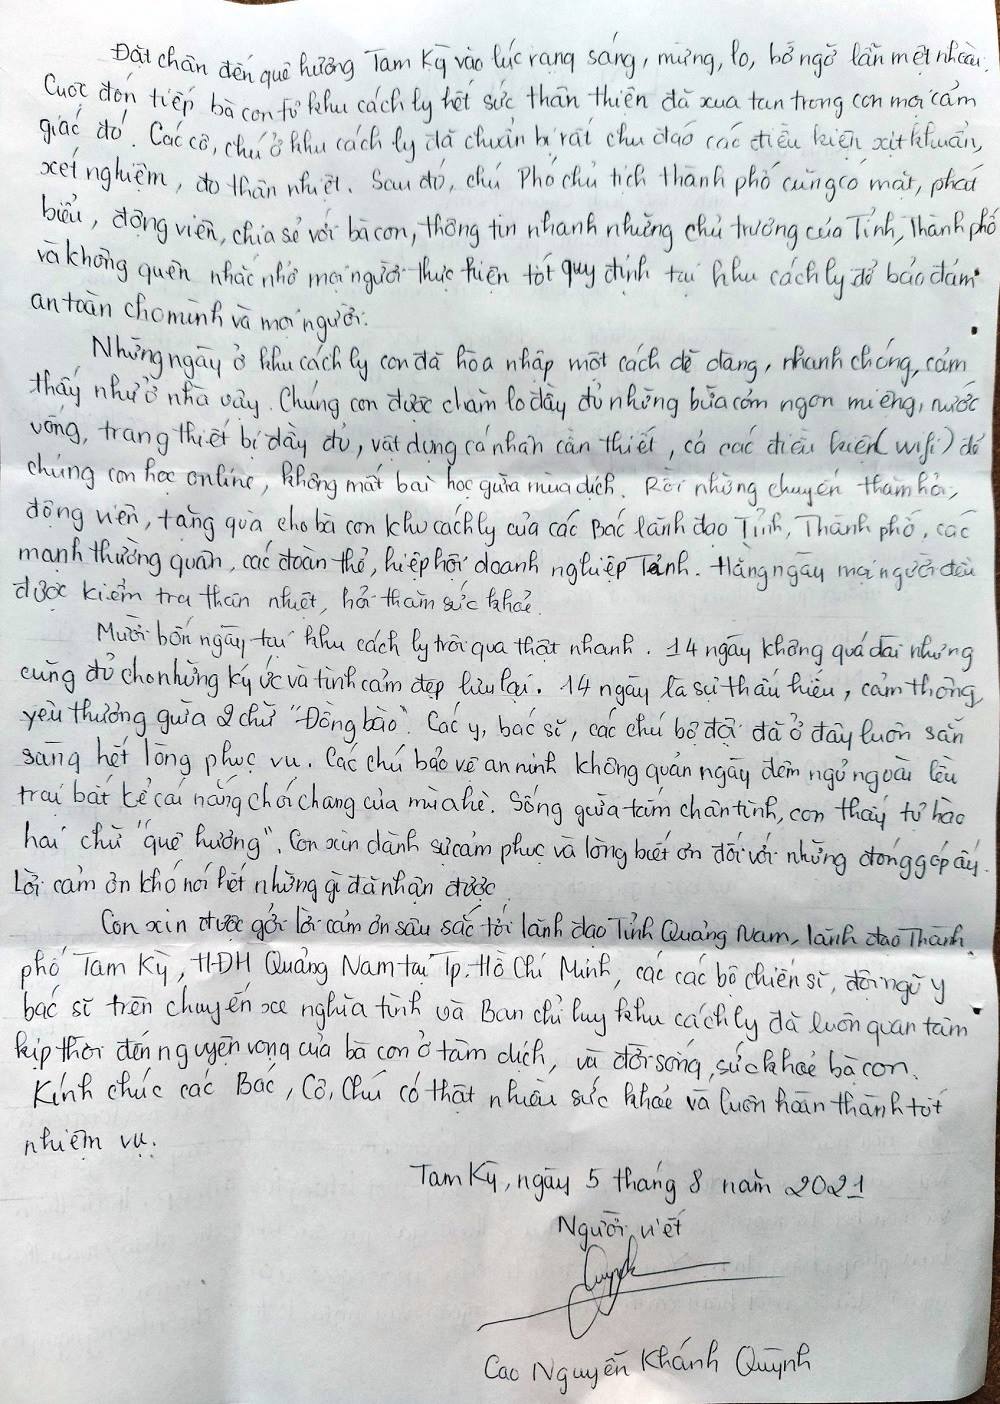 Đặt chân đến quê hương Tam Kỳ vào lúc rạng sáng, mừng, lo, bỡ ngỡ lẫn mệt nhoài.
Cuộc đón tiếp bà con từ khu cách ly hết sức thân thiện đã xua tan trong con mọi cảm
giác đó. Các cô, chú ở khu cách ly đã chuẩn bị rất chu đáo các điều kiện xịt khuẩn,
xét nghiệm, đo thân nhiệt. Sau đó, chú Phó chủ tịch thành phố cũng có mặt, phát
biểu, động viên, chia sẻ với bà con, thông tin nhanh những chủ trương của Tỉnh, Thành phố
và không quên nhắc nhở mọi người thực hiện tốt quy định tại khu cách ly để bảo đảm
an toàn cho mình và mọi người.
Những ngày ở khu cách ly con đã hòa nhập một cách dễ dàng, nhanh chóng, cảm
thấy như ở nhà vậy. Chúng con được chăm lo đầy đủ những bữa cơm ngon miệng, nước
uống, trang thiết bị đầy đủ, vật dụng cá nhân cần thiết, cả các điều kiện (wifi) để
chúng con học online, không mất bài học giữa mùa dịch. Rồi những chuyến thăm hỏi,
động viên, tặng quà cho bà con khu cách ly của các Bác lãnh đạo Tỉnh, Thành phố, các
mạnh thường quân, các đoàn thể, hiệp hội doanh nghiệp Tỉnh. Hằng ngày mọi người đều
được kiểm tra thân nhiệt, hỏi thăm sức khoẻ.
Mười bốn ngày tại khu cách ly trôi qua thật nhanh. 14 ngày không quá dài nhưng
cũng đủ cho những ký ức và tình cảm đẹp lưu lại. 14 ngày là sự thấu hiểu, cảm thông,
yêu thương giữa 2 chữ "Đồng bào". Các y, bác sĩ, các chú bộ đội đã ở đây luôn sẵn
sàng hết lòng phục vụ. Các chú bảo vệ an ninh không quản ngày đêm ngủ ngoài lều
trại bất kể cái nắng chói chang của mùa hè. Sống giữa tấm chân tình, con thấy tự hào
hai chữ "quê hương". Con xin dành sự cảm phục và lòng biết ơn đối với những đóng góp ấy.
Lời cảm ơn khó nói hết những gì đã nhận được.
Con xin được gởi lời cảm ơn sâu sắc tới lãnh đạo Tỉnh Quảng Nam, lãnh đạo Thành
phố Tam Kỳ, HĐH Quảng Nam tại Tp. Hồ Chí Minh, các các bộ chiến sĩ, đội ngũ y
bác sĩ trên chuyến xe nghĩa tình và Ban chỉ huy khu cách ly đã luôn quan tâm
kịp thời đến nguyện vọng của bà con ở tâm dịch, và đời sống, sức khoẻ bà con.
Kính chúc các Bác, Cô, Chú có thật nhiều sức khỏe và luôn hoàn thành tốt
nhiệm vụ.
Tam Kỳ, ngày 5 tháng 8 năm 2021
Người viết
Quỳnh
Cao Nguyễn Khánh Quỳnh